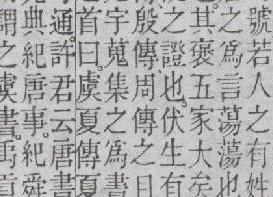 號若人之有姓
之爲言蕩蕩也
其褒五家大矣
之證也。伏生有
殷傳周傳之曰
宇蒐集之爲書
首曰。虞夏傳夏
通。許君云唐書
典紀唐事。紀舜
之虞書。禹